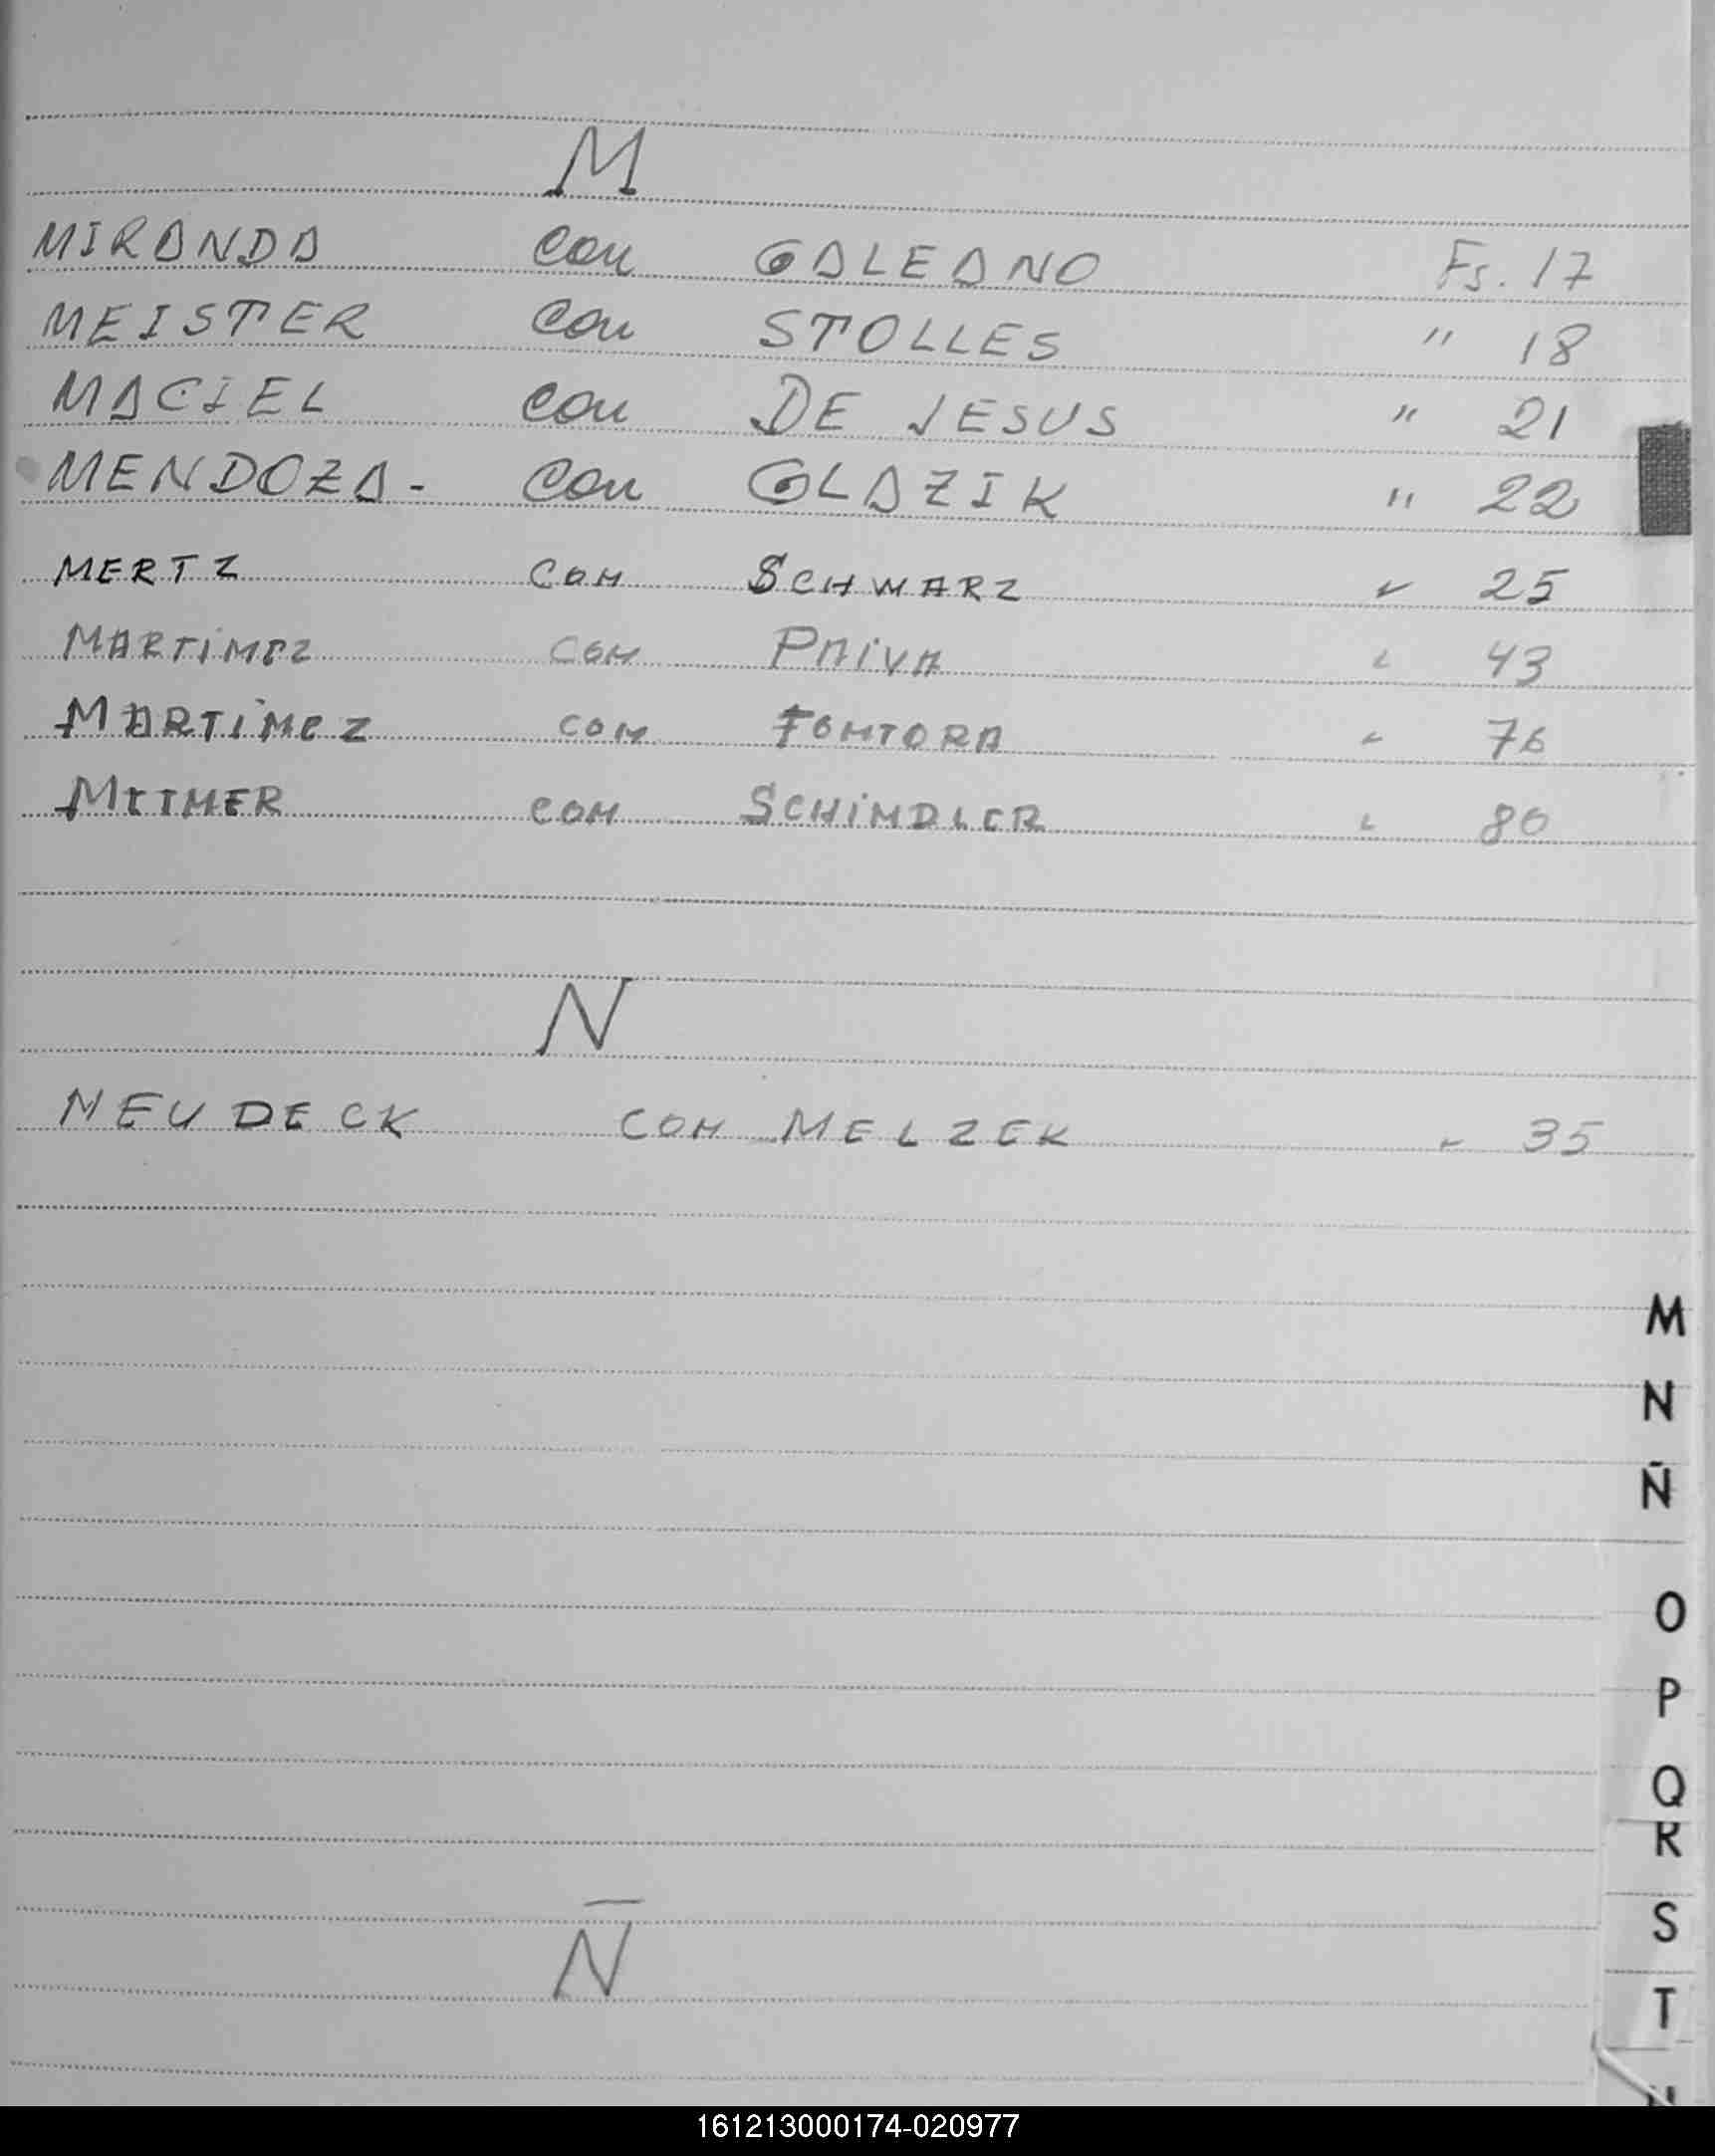 M
MIRANDA con GALEANO Fs. 17
MEISTER con STOLLES " 18
MACIEL con DE JESUS " 21
MENDOZA - con GLAZIK " 22
MERTZ CON SCHWARZ " 25
MARTINEZ CON PAIVA " 43
MARTINEZ CON FONTORA " 76
MEINER CON SCHINDLER " 80
N
NEUDECK CON MELZEK " 35
Ñ
M
N
Ñ
O
P
Q
R
S
T
161213000174-020977